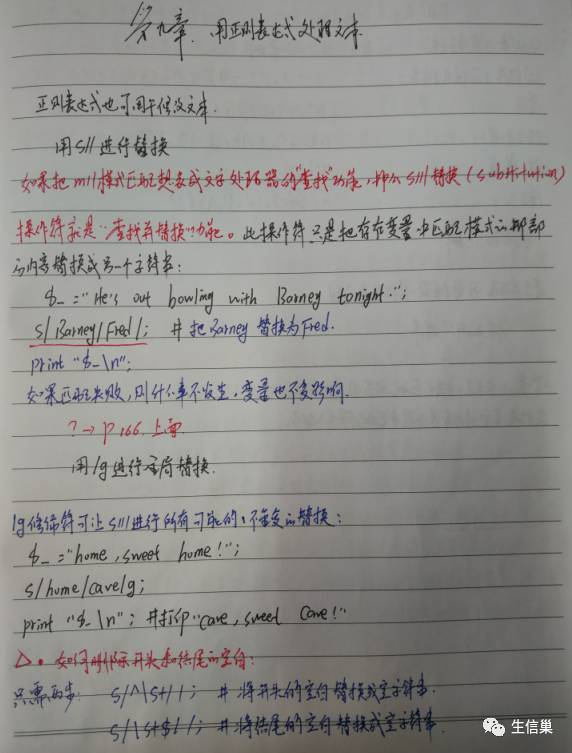 第九章. 用正则表达式处理文本
正则表达式也可用于修改文本.
用s///进行替换
如果把m//模式匹配想象成文字处理器的“查找”功能,那么s///替换(substitution)
操作符就是“查找并替换”功能。此操作符只是把存在变量中匹配模式的那部
分内容替换成另一个字符串:
$_ = "He's out bowling with Barney tonight.";
s/Barney/Fred/; # 把Barney替换为Fred.
print "$_\n";
如果匹配失败,则什么事不发生,变量也不受影响.
? → P166.上面
用/g进行全局替换.
/g修饰符可让s///进行所有可能的、不重复的替换:
$_ = "home, sweet home!";
s/home/cave/g;
print "$_\n"; #打印"cave, sweet cave!"
△. 如何删除开头和结尾的空白:
只需两步: s/^\s+//; # 将开头的空白替换成空字符串.
s/\s+$//; # 将结尾的空白替换成空字符串.
生信巢